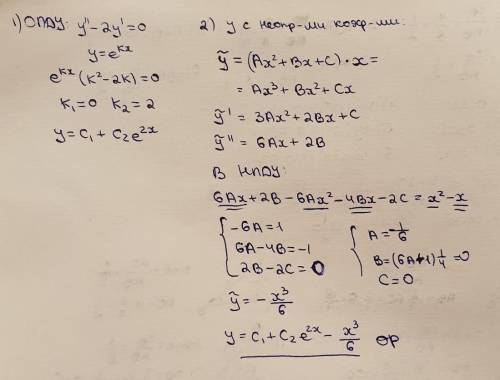 1) ОЛДУ: y'' - 2y' = 0
y = e^{kx}
e^{kx}(k² - 2k) = 0
k₁ = 0 k₂ = 2
y = C₁ + C₂e^{2x}
2) y с неопр-ми коэф-ми:
ỹ = (Ax² + Bx + C) · x =
= Ax³ + Bx² + Cx
ỹ' = 3Ax² + 2Bx + C
ỹ'' = 6Ax + 2B
В НЛДУ:
6Ax + 2B - 6Ax² - 4Bx - 2C = x² - x
{ -6A = 1
6A - 4B = -1
2B - 2C = 0
{ A = -1/6
B = (6A + 1) 1/4 = 0
C = 0
ỹ = - x³/6
y = C₁ + C₂e^{2x} - x³/6 ор